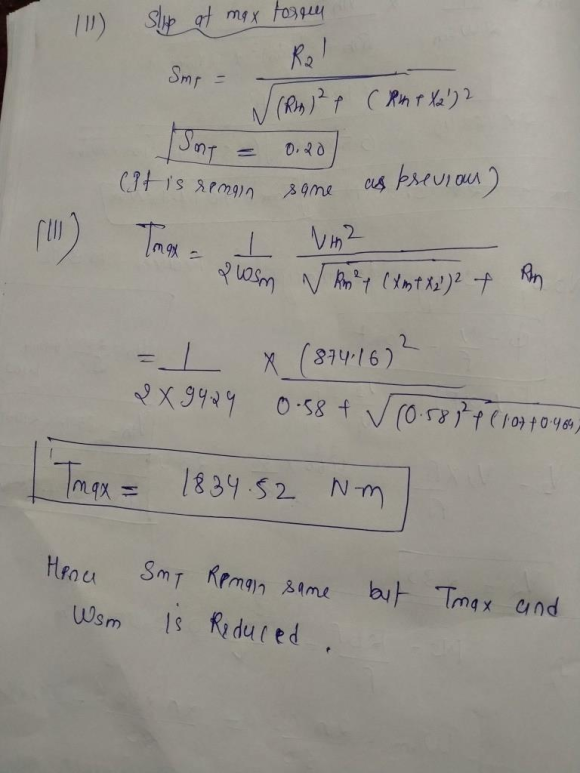 (II) Slip at max torque
SmT = R2' / √((Rm)² + (Xm + X2')²)
SmT = 0.20
(It is remain same as previous)
(III) Tmax = 1 / 2Wsm Vm² / √(Rm² + (Xm + X2')²) + Rm
= 1 / 2 × 94.24 × (874.16)² / 0.58 + √((0.58)² + (1.07 + 0.464)
Tmax = 1834.52 N-m
Hence SmT Remain same but Tmax and
Wsm is Reduced.